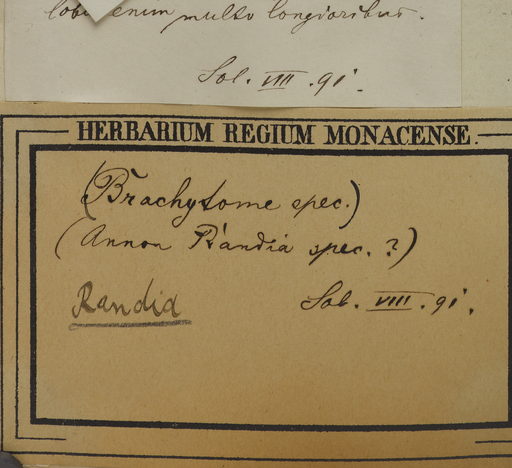 enim multo longioribus.
Sol. VIII. 91.
HERBARIUM REGIUM MONACENSE.
(Brachytome spec.)
(Annon Randia spec. ?)
Randia
Sol. VIII. 91.